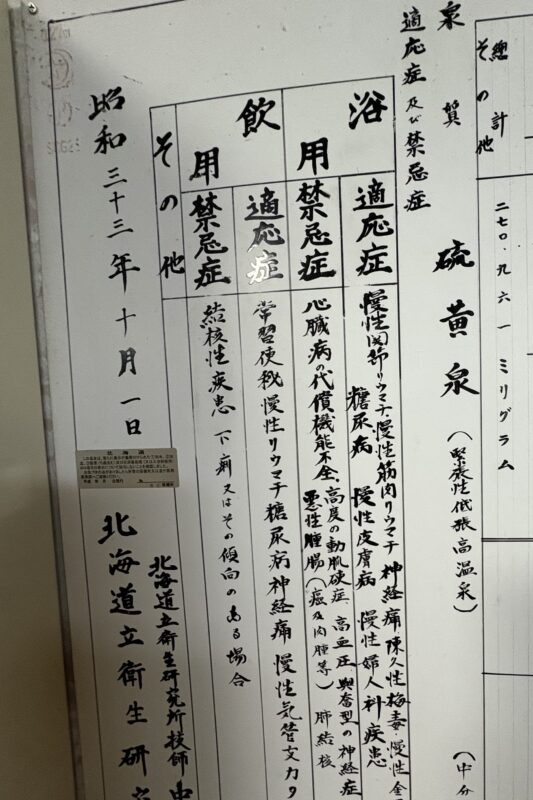 總計 二七〇・九六一 ミリグラム
その他
泉質 硫黄泉 (緊張性低張高温泉) (中
適応症及び禁忌症
浴用
適応症
慢性関節リウマチ、慢性筋肉リウマチ 神経痛 陳久性梅毒 慢性金
糖尿病 慢性皮膚病 慢性婦人科疾患
禁忌症
心臓病の代償機能不全、高度の動脈硬症、高血圧 興奮型の神経症
悪性腫腸(癌及肉腫等) 肺結核
飲用
適応症
常習便秘 慢性リウマチ 糖尿病 神経痛 慢性気管支カタ
禁忌症
結核性疾患 下痢又はその傾向のある場合
その他
昭和三十三年十月一日
北海道
北海道立衛生研究所技師 中
北海道立衛生研究